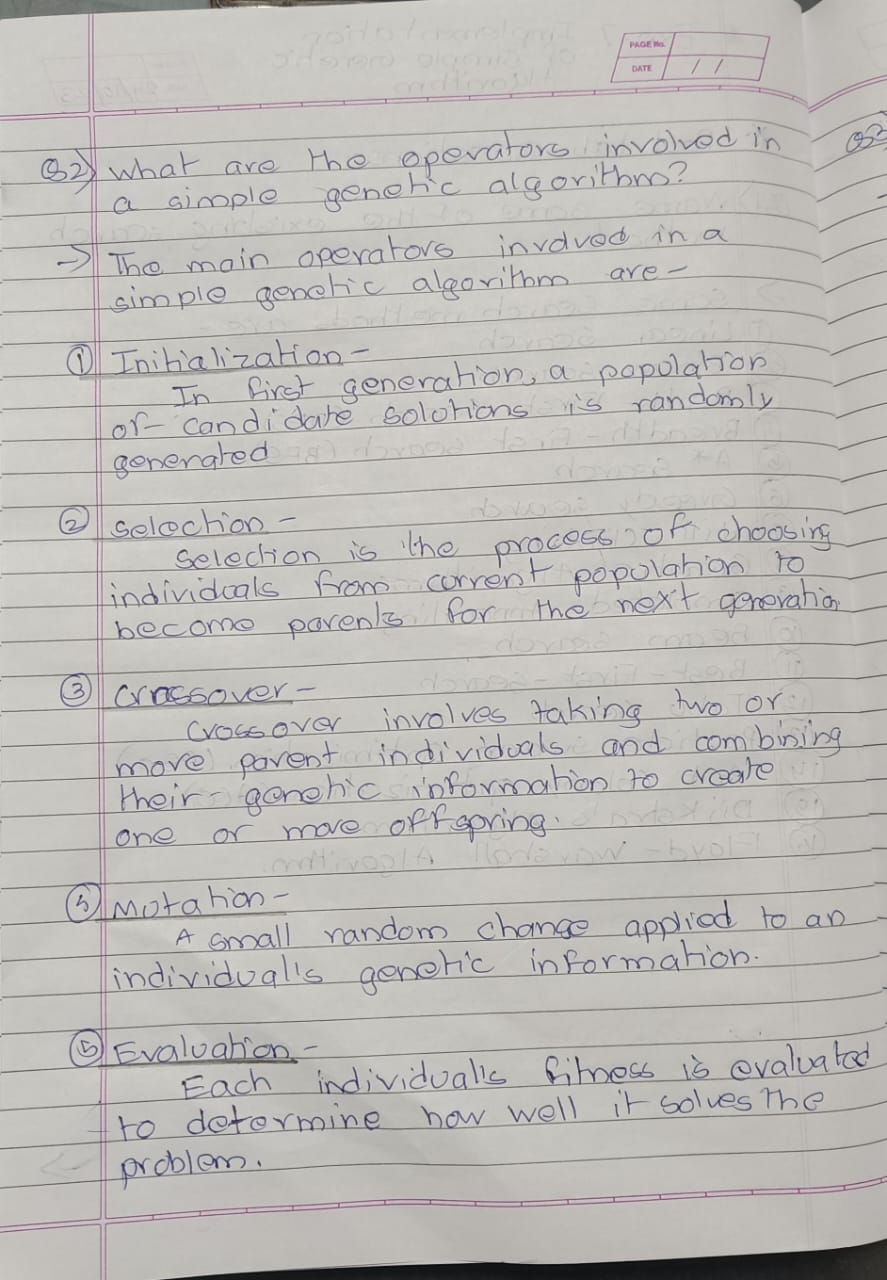 PAGE No.
DATE / /
Q2) What are the operators involved in
a simple genetic algorithm?
→ The main operators involved in a
simple genetic algorithm are -
① Initialization -
In first generation, a population
of candidate solutions is randomly
generated
② Selection -
Selection is the process of choosing
individuals from current population to
become parents for the next generation
③ Crossover -
Crossover involves taking two or
more parent individuals and combining
their genetic information to create
one or more offspring.
④ Mutation -
A small random change applied to an
individual's genetic information.
⑤ Evaluation -
Each individual's fitness is evaluated
to determine how well it solves the
problem.